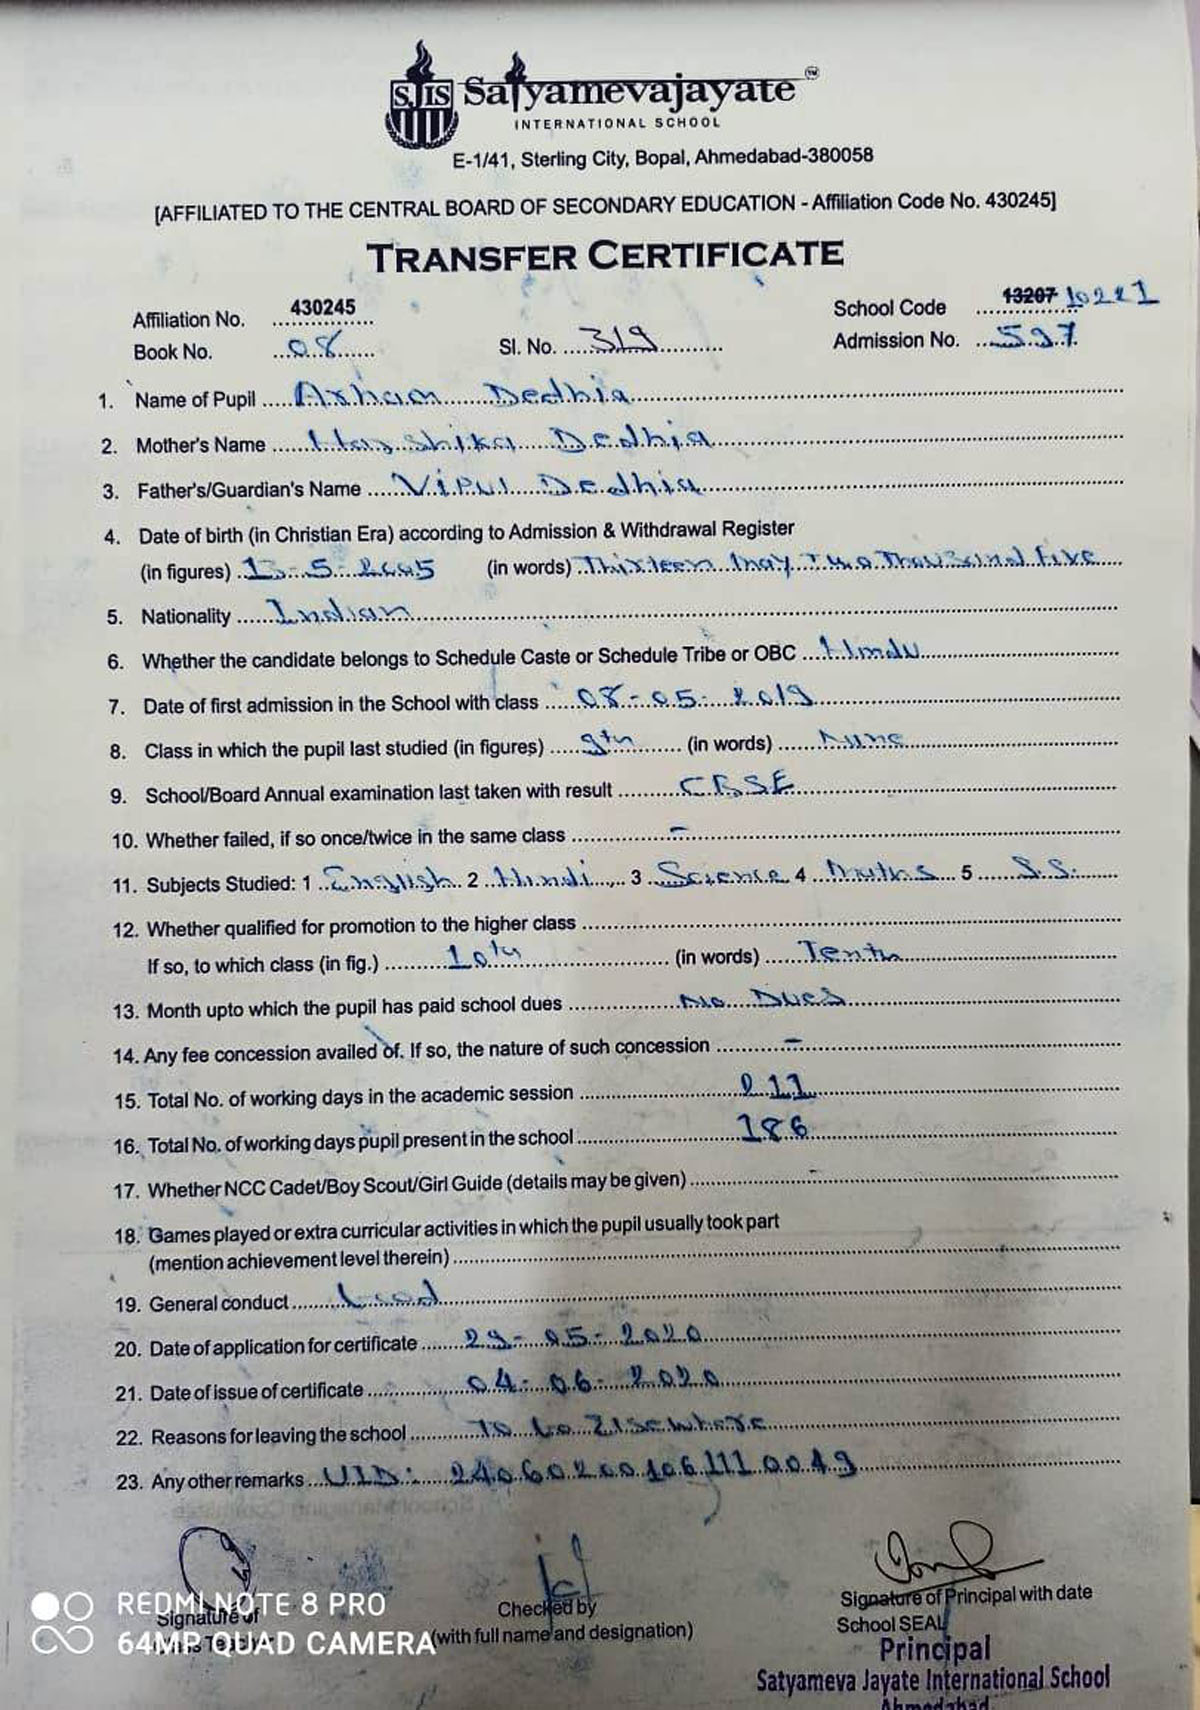 SJIS Satyamevajayate TM
INTERNATIONAL SCHOOL
E-1/41, Sterling City, Bopal, Ahmedabad-380058
[AFFILIATED TO THE CENTRAL BOARD OF SECONDARY EDUCATION - Affiliation Code No. 430245]
TRANSFER CERTIFICATE
Affiliation No. 430245 School Code 13207 10221
Book No. 08 Sl. No. 319 Admission No. 597
1. Name of Pupil Arham Dedhia
2. Mother's Name Harshika Dedhia
3. Father's/Guardian's Name Vipul Dedhia
4. Date of birth (in Christian Era) according to Admission & Withdrawal Register
(in figures) 13-5-2005 (in words) Thirteen May Two Thousand Five
5. Nationality Indian
6. Whether the candidate belongs to Schedule Caste or Schedule Tribe or OBC Hindu
7. Date of first admission in the School with class 08-05-2019
8. Class in which the pupil last studied (in figures) 9th (in words) Nine
9. School/Board Annual examination last taken with result CBSE
10. Whether failed, if so once/twice in the same class -
11. Subjects Studied: 1 English 2 Hindi 3 Science 4 Maths 5 S.S.
12. Whether qualified for promotion to the higher class
If so, to which class (in fig.) 10th (in words) Tenth
13. Month upto which the pupil has paid school dues No Dues
14. Any fee concession availed of. If so, the nature of such concession -
15. Total No. of working days in the academic session 211
16. Total No. of working days pupil present in the school 186
17. Whether NCC Cadet/Boy Scout/Girl Guide (details may be given) -
18. Games played or extra curricular activities in which the pupil usually took part
(mention achievement level therein)
19. General conduct Good
20. Date of application for certificate 29-05-2020
21. Date of issue of certificate 04-06-2020
22. Reasons for leaving the school To Go Elsewhere
23. Any other remarks UID: 240602001061110049
REDMI NOTE 8 PRO
64MP QUAD CAMERA
Signature of
Class Teacher
Checked by
(with full name and designation)
Signature of Principal with date
School SEAL
Principal
Satyameva Jayate International School
Ahmedabad